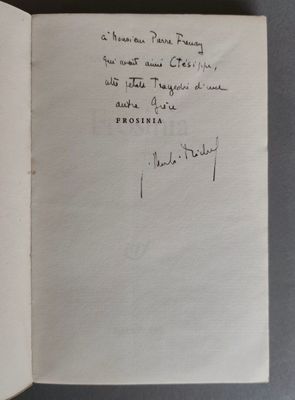 à Monsieur Pierre Fresnay
qui avait aimé Ctésippe,
cette petite Tragédie d'une
autre Grèce
FROSINIA